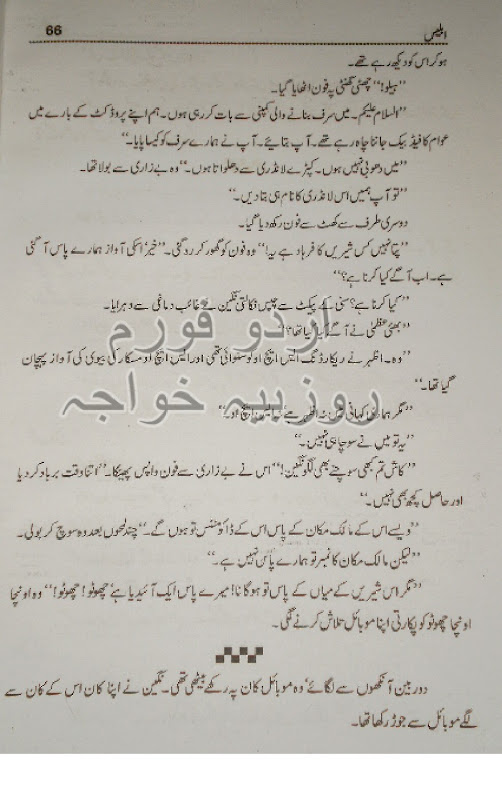 ابلیس 66
ہو کر اس کو دیکھ رہے تھے۔
’’ہیلو!‘‘ چھٹی گھنٹی پہ فون اٹھایا گیا۔
’’السلام علیکم۔ میں سرف بنانے والی کمپنی سے بات کر رہی ہوں۔ ہم اپنے پروڈکٹ کے بارے میں
عوام کا فیڈ بیک جاننا چاہ رہے تھے۔ آپ بتائیے۔ آپ نے ہمارے سرف کو کیسا پایا۔‘‘
’’میں دھوبی نہیں ہوں۔ کپڑے لانڈری سے دھلواتا ہوں۔‘‘ وہ بے زاری سے بولا تھا۔
’’تو آپ ہمیں اس لانڈری کا نام ہی بتا دیں۔‘‘
دوسری طرف سے کھٹ سے فون رکھ دیا گیا۔
’’پتا نہیں کس شیریں کا فرہاد ہے یہ!‘‘ وہ فون کو گھور کر رہ گئی۔ ’’خیر‘ اسکی آواز ہمارے پاس آ گئی
ہے۔ اب آگے کیا کرنا ہے؟‘‘
’’کیا کرنا ہے؟ سنی کے پیکٹ سے چپس نکالتی نگین نے غائب دماغی سے دہرایا۔
’’بھئی عظمیٰ نے آگے کیا کیا تھا؟‘‘
’’وہ۔ اظہر نے ریکارڈنگ ایس ایچ او کو سنوائی تھی اور ایس ایچ او مسکار کی بیوی کی آواز پہچان
گیا تھا۔‘‘
’’مگر ہماری کہانی میں نہ اظہر ہے نہ ایس ایچ او۔‘‘
’’یہ تو میں نے سوچا ہی نہیں۔‘‘
’’کاش تم کبھی سوچنے بھی لگو نگین!‘‘ اس نے بے زاری سے فون واپس پھینکا۔ ’’اتنا وقت برباد کر دیا
اور حاصل کچھ بھی نہیں۔‘‘
’’ویسے اس کے مالک مکان کے پاس اس کے ڈاکومنٹس تو ہوں گے۔‘‘ چند لمحوں بعد وہ سوچ کر بولی۔
’’لیکن مالک مکان کا نمبر تو ہمارے پاس نہیں ہے۔‘‘
’’مگر اس شیریں کے میاں کے پاس تو ہو گا نا! میرے پاس ایک آئیڈیا ہے‘ چھوٹو! چھوٹو!‘‘ وہ اونچا
اونچا چھوٹو کو پکارتی اپنا موبائل تلاش کرنے لگی۔
دوربین آنکھوں سے لگائے‘ وہ موبائل کان پہ رکھے بیٹھی تھی۔ نگین نے اپنا کان اس کے کان سے
لگے موبائل سے جوڑ رکھا تھا۔
اردو فورم
روزبیہ خواجہ